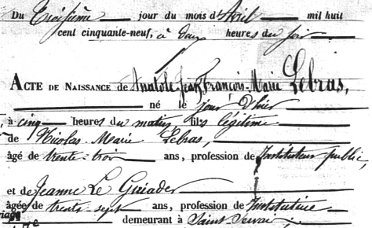 Du Troisième jour du mois d'Avril mil huit
cent cinquante-neuf, à deux heures du soir
ACTE DE NAISSANCE de Anatole Jean François-Marie Lebras,
né le jour d'hier
à cinq heures du matin fils légitime
de Nicolas Marie Lebras,
âgé de trente-trois ans, profession de Instituteur public,
et de Jeanne Le Guiader
âgée de trente-sept ans, profession de Institutrice
demeurant à Saint Servais;